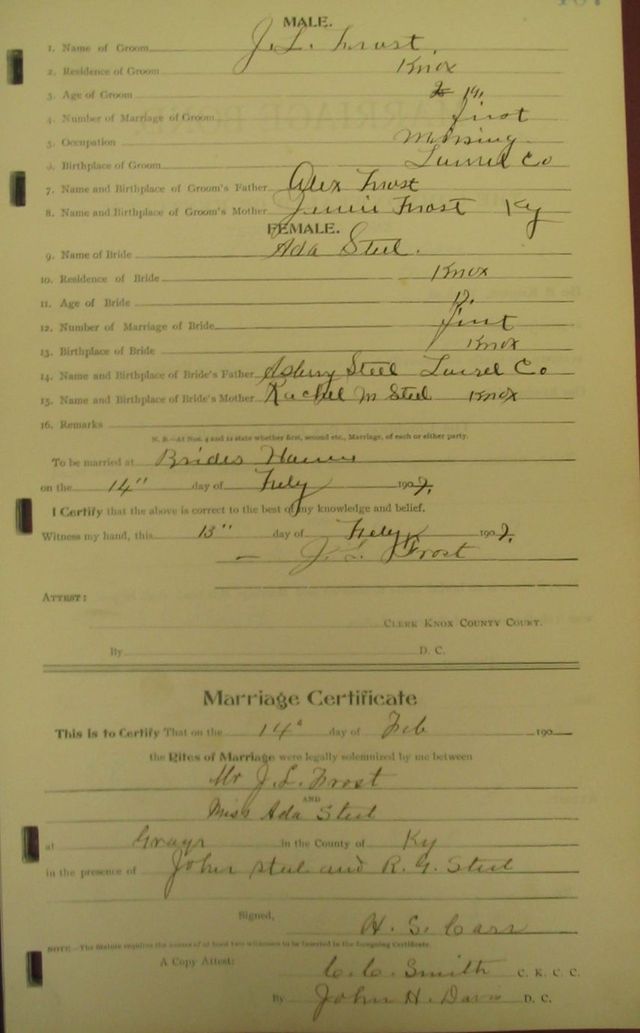 MALE.
1. Name of Groom J. L. Frost.
2. Residence of Groom Knox
3. Age of Groom 19.
4. Number of Marriage of Groom first
5. Occupation
6. Birthplace of Groom Laurel Co
7. Name and Birthplace of Groom's Father Alex Frost
8. Name and Birthplace of Groom's Mother Jennie Frost Ky
FEMALE.
9. Name of Bride Ada Steel.
10. Residence of Bride Knox
11. Age of Bride
12. Number of Marriage of Bride first
13. Birthplace of Bride Knox
14. Name and Birthplace of Bride's Father Asbury Steel Laurel Co
15. Name and Birthplace of Bride's Mother Rachel M Steel Knox
16. Remarks
N. B.—At Nos. 4 and 12 state whether first, second etc., Marriage, of each or either party.
To be married at Brides
on the 14" day of 190
I Certify that the above is correct to the best of my knowledge and belief.
Witness my hand, this 13" day of 190
J. L. Frost
ATTEST:
CLERK KNOX COUNTY COURT.
By D. C.
Marriage Certificate
This is to Certify That on the 14" day of Feb 190
the Rites of Marriage were legally solemnized by me between
Mr J. L. Frost
AND
Miss Ada Steel
at Grays in the County of Ky
in the presence of John Steel and R. G. Steel
Signed,
H. S. Carr
NOTE—The Statute requires the names of at least two witnesses to be inserted in the foregoing Certificate.
A Copy Attest: C. C. Smith C. K. C. C.
By John H. Davis D. C.